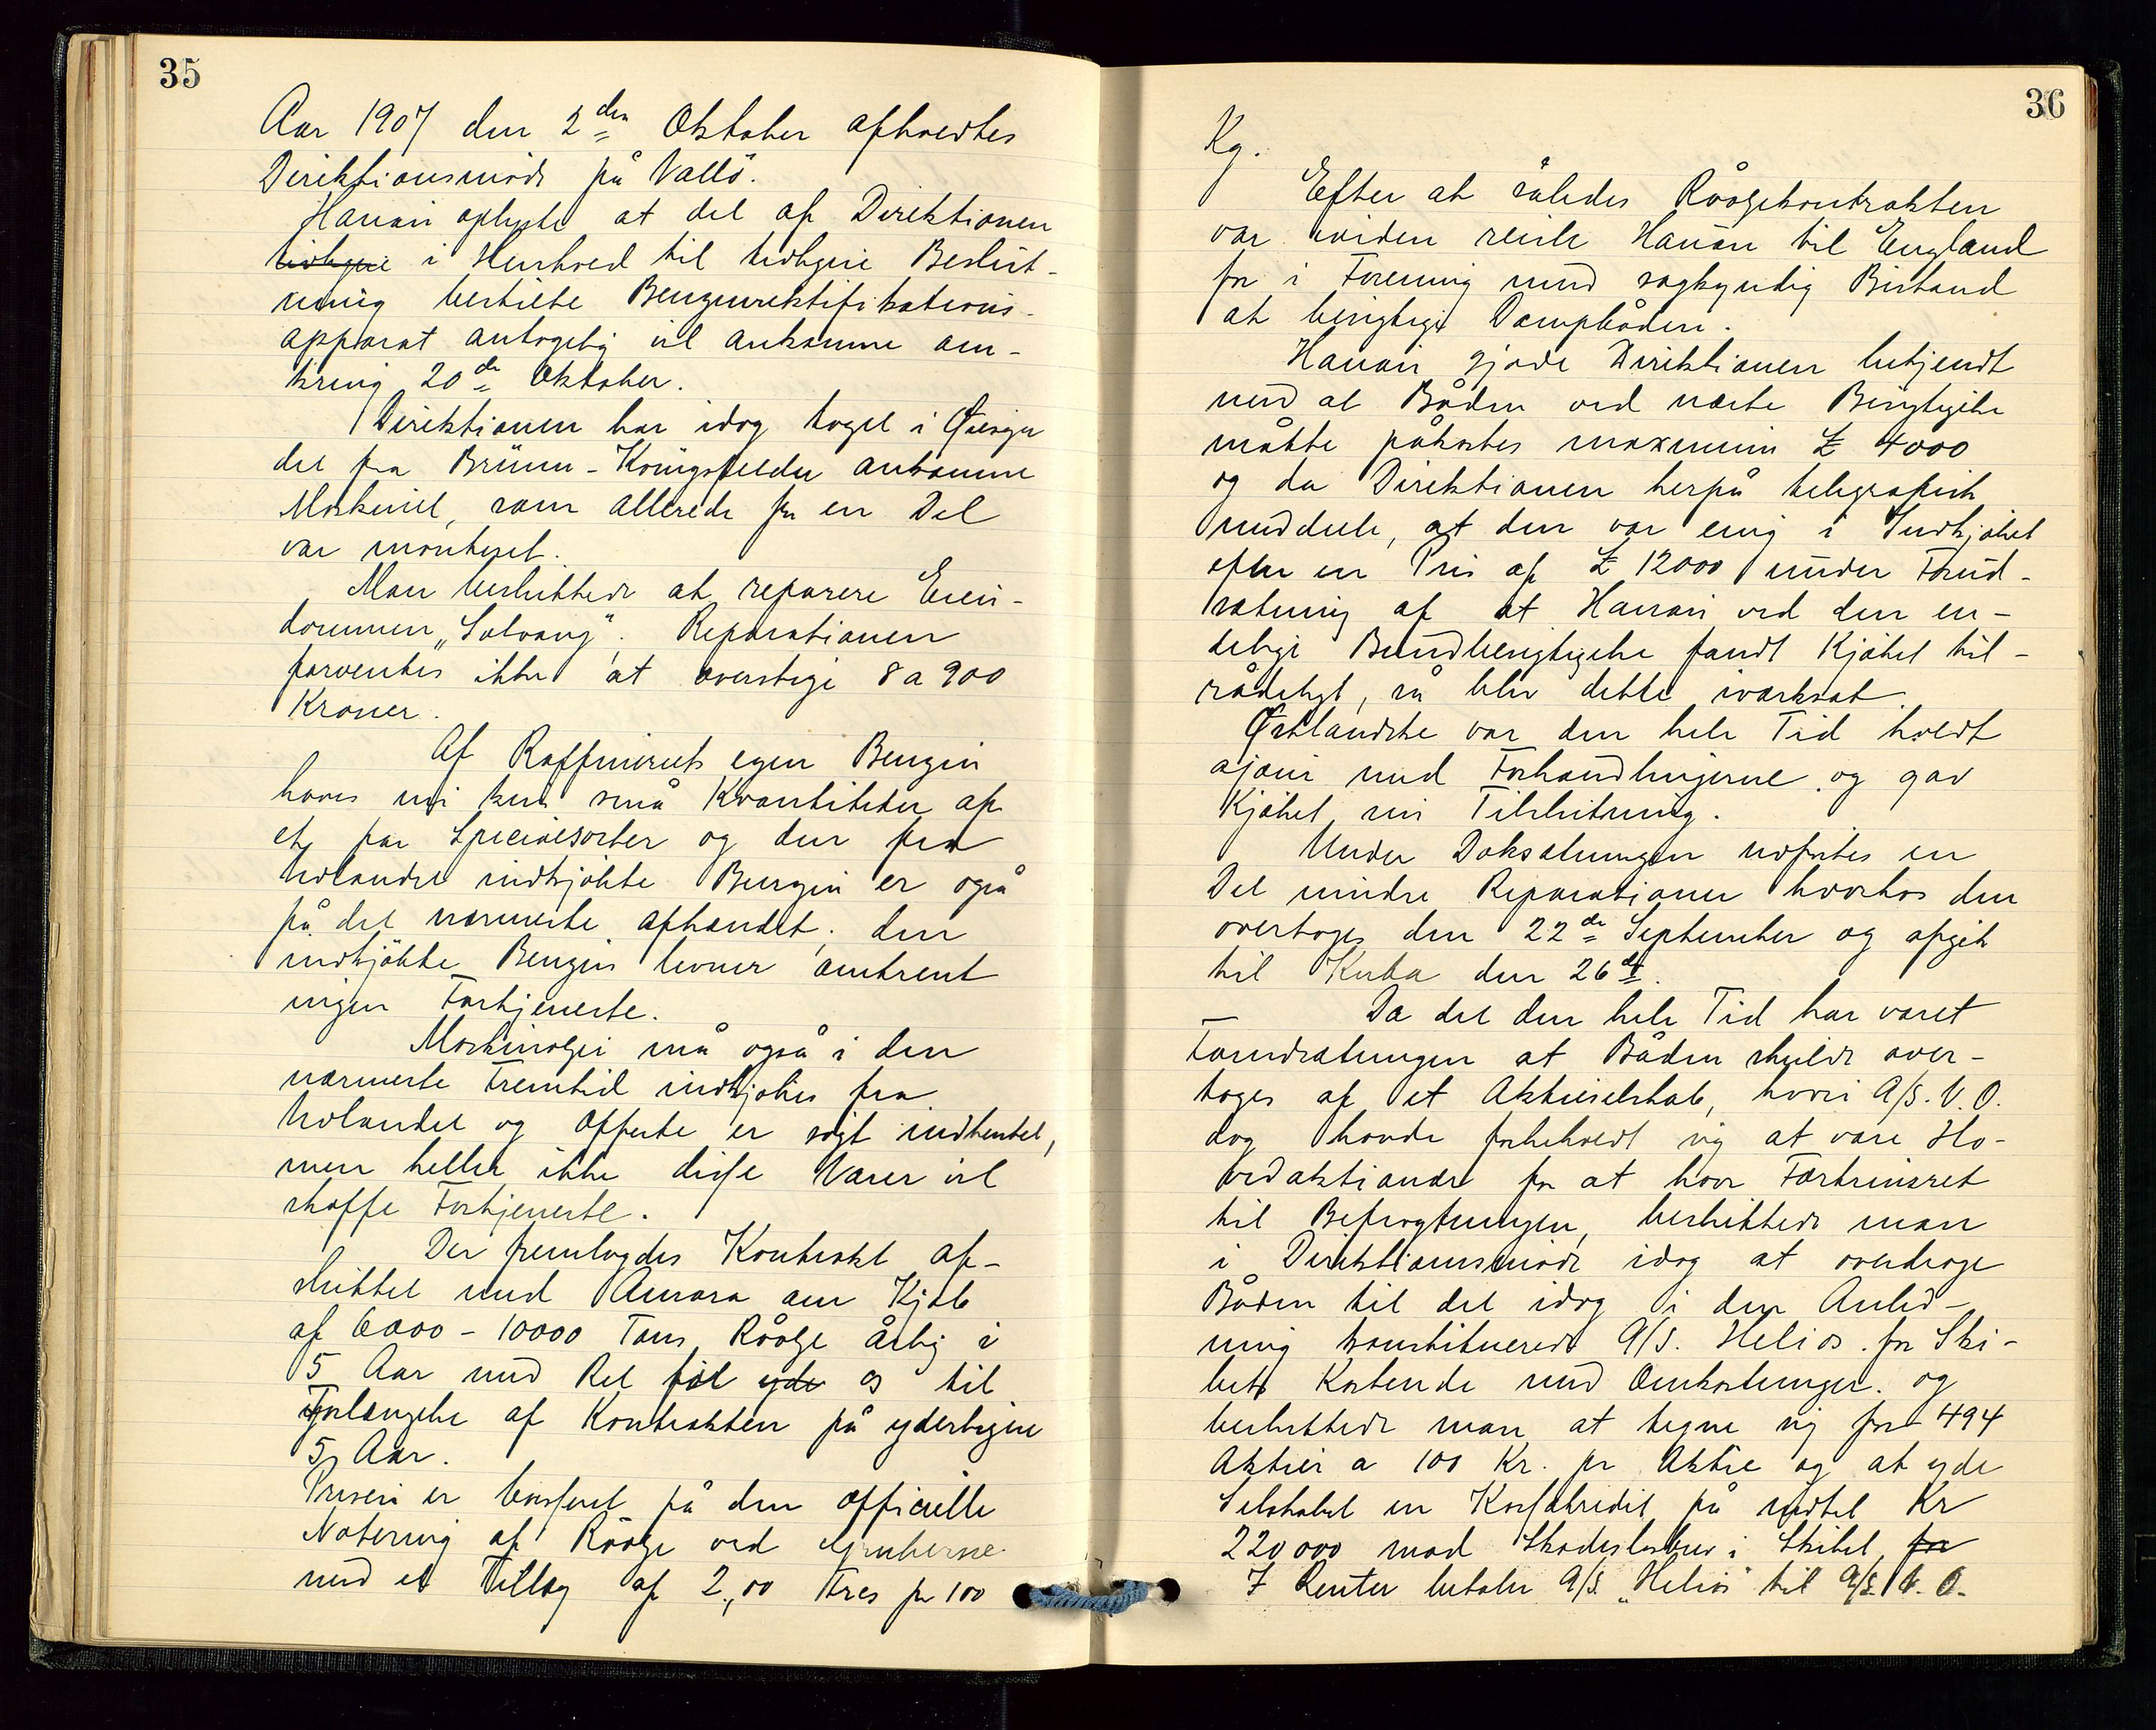 35
Aar 1907 den 2den Oktober afholdtes
Direktionsmöde på Vallö.
Hanan oplyste at det af Direktionen
tidligere i Henhold til tidligere Beslut-
ning bestilte Benzinrektifikations-
apparat antagelig vil ankomme om-
kring 20de Oktober.
Direktionen har idag taget i Øiesyn
det fra Brünn-Königsfelder ankomne
Maskineri, som allerede for en Del
var monteret.
Man besluttede at reparere Eien-
dommen „Solvang“. Reparationen
forventes ikke at overstige 8 a 900
Kroner.
Af Raffineriets egen Benzin
haves nu kun små Kvantiteter af
et par Specialsorter og den fra
Udlandet indkjöbte Benzin er også
på det nærmeste afhændet; den
indkjöbte Benzin levner omtrent
ingen Fortjeneste.
Maskinolje må også i den
nærmeste Fremtid indkjöbes fra
Udlandet og Offerte er sögt indhentet,
men heller ikke disse Varer vil
skaffe Fortjeneste.
Der fremlagdes Kontrakt af-
sluttet med Aurora om Kjöb
af 6000 - 10000 Tons Råolje årlig i
5 Aar med Ret for yde os til
Forlængelse af Kontrakten på yderligere
5 Aar.
Prisen er baseret på den officielle
Notering af Råolje ved Gruberne
med et Tillæg af 2,00 Frcs pr 100
36
Kg.
Efter at således Råoljekontrakten
var iorden reiste Hanan til England
for i Forening med sagkyndig Bistand
at besigtige Dampbåden.
Hanan gjorde Direktionen bekjendt
med at Båden ved næste Besigtigelse
måtte påkostes maximum £ 4000
og da Direktionen herpå telegrafisk
meddelte, at den var enig i Indkjöbet
efter en Pris af £ 12000 under Forud-
sætning af at Hanan ved den en-
delige Bundbesigtigelse fandt Kjöbet til-
rådeligt, så blev dette iværksat.
Østlandske var den hele Tid holdt
ajour med Forhandlingerne og gav
Kjöbet sin Tilslutning.
Under Doksætningen udförtes en
Del mindre Reparationer hvorhos den
overtoges den 22de September og afgik
til Kuba den 26de.
Da det den hele Tid har været
Forudsætningen at Båden skulde over-
tages af et Aktieselskab, hvori A/S. V. O.
dog havde forbeholdt sig at være Ho-
vedaktionær for at have Fortrinsret
til Befragtningen, besluttede man
i Direktionsmöde idag at overdrage
Båden til det idag i den Anled-
ning konstituerede A/S. Helios for Ski-
bets Kostende med Omkostninger og
besluttede man at tegne sig for 494
Aktier a 100 Kr. pr Aktie og at yde
Selskabet en Kassakredit på indtil Kr
220 000 mod Skadeslösbrev i Skibet, for
I Renter betaler A/S. „Helios“ til A/S. V. O.